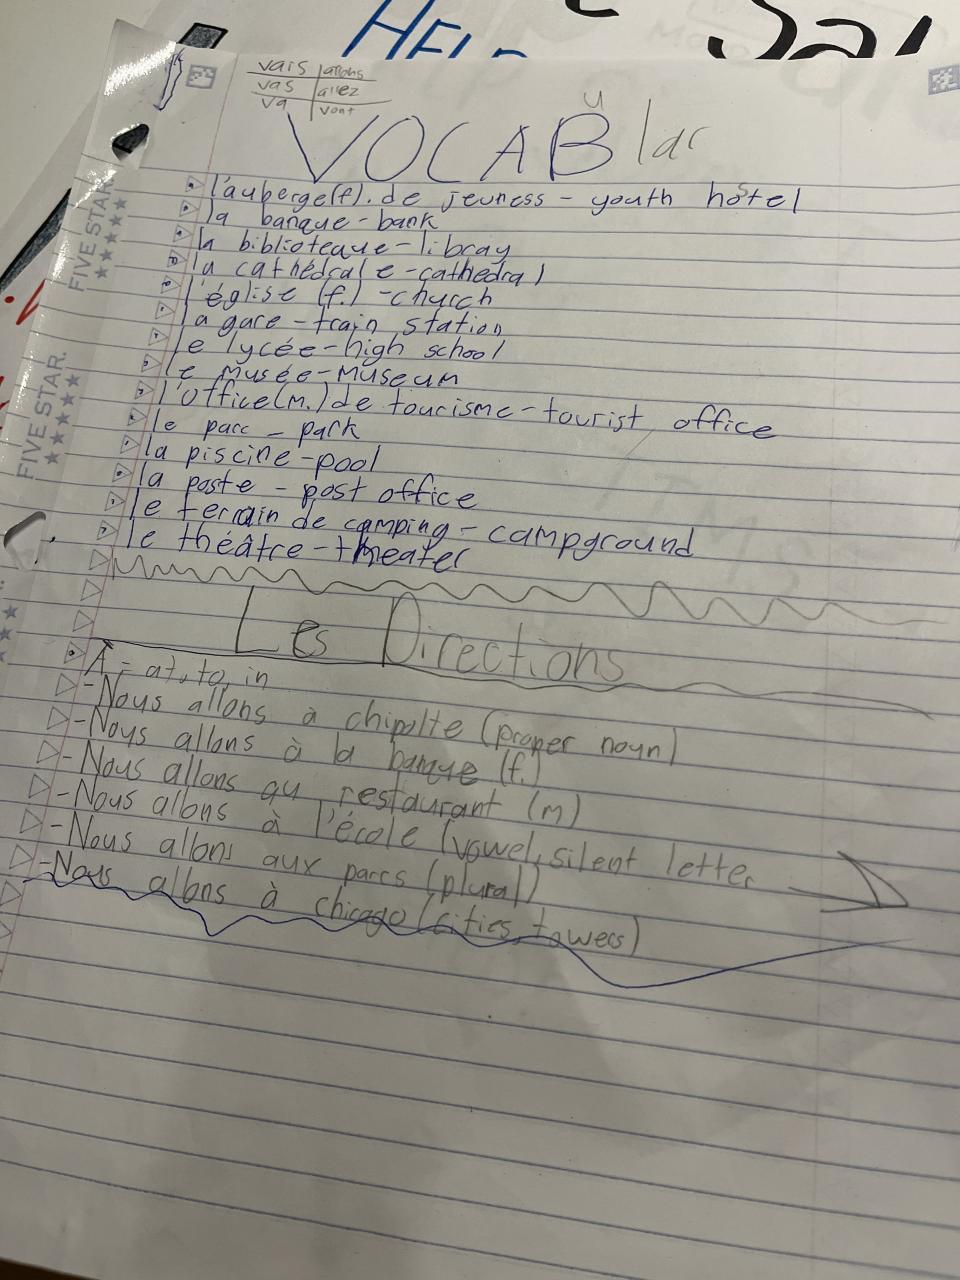 HELP
vais | allons
vas | allez
va | vont
VOCABular
l'auberge(f). de jeuness - youth hostel
la banque - bank
la biblioteque - libray
la cathédrale - cathedral
l'église (f.) - church
la gare - train station
le lycée - high school
le musée - museum
l'office(m.) de tourisme - tourist office
le parc - park
la piscine - pool
la poste - post office
le terrain de camping - campground
le théâtre - theater
Les Directions
À = at, to, in
- Nous allons à chipolte (proper noun)
- Nous allons à la banque (f.)
- Nous allons au restaurant (m)
- Nous allons à l'école (vowel, silent letter
- Nous allons aux parcs (plural)
- Nous allons à chicago (cities, towers)
FIVE STAR.
FIVE STAR.